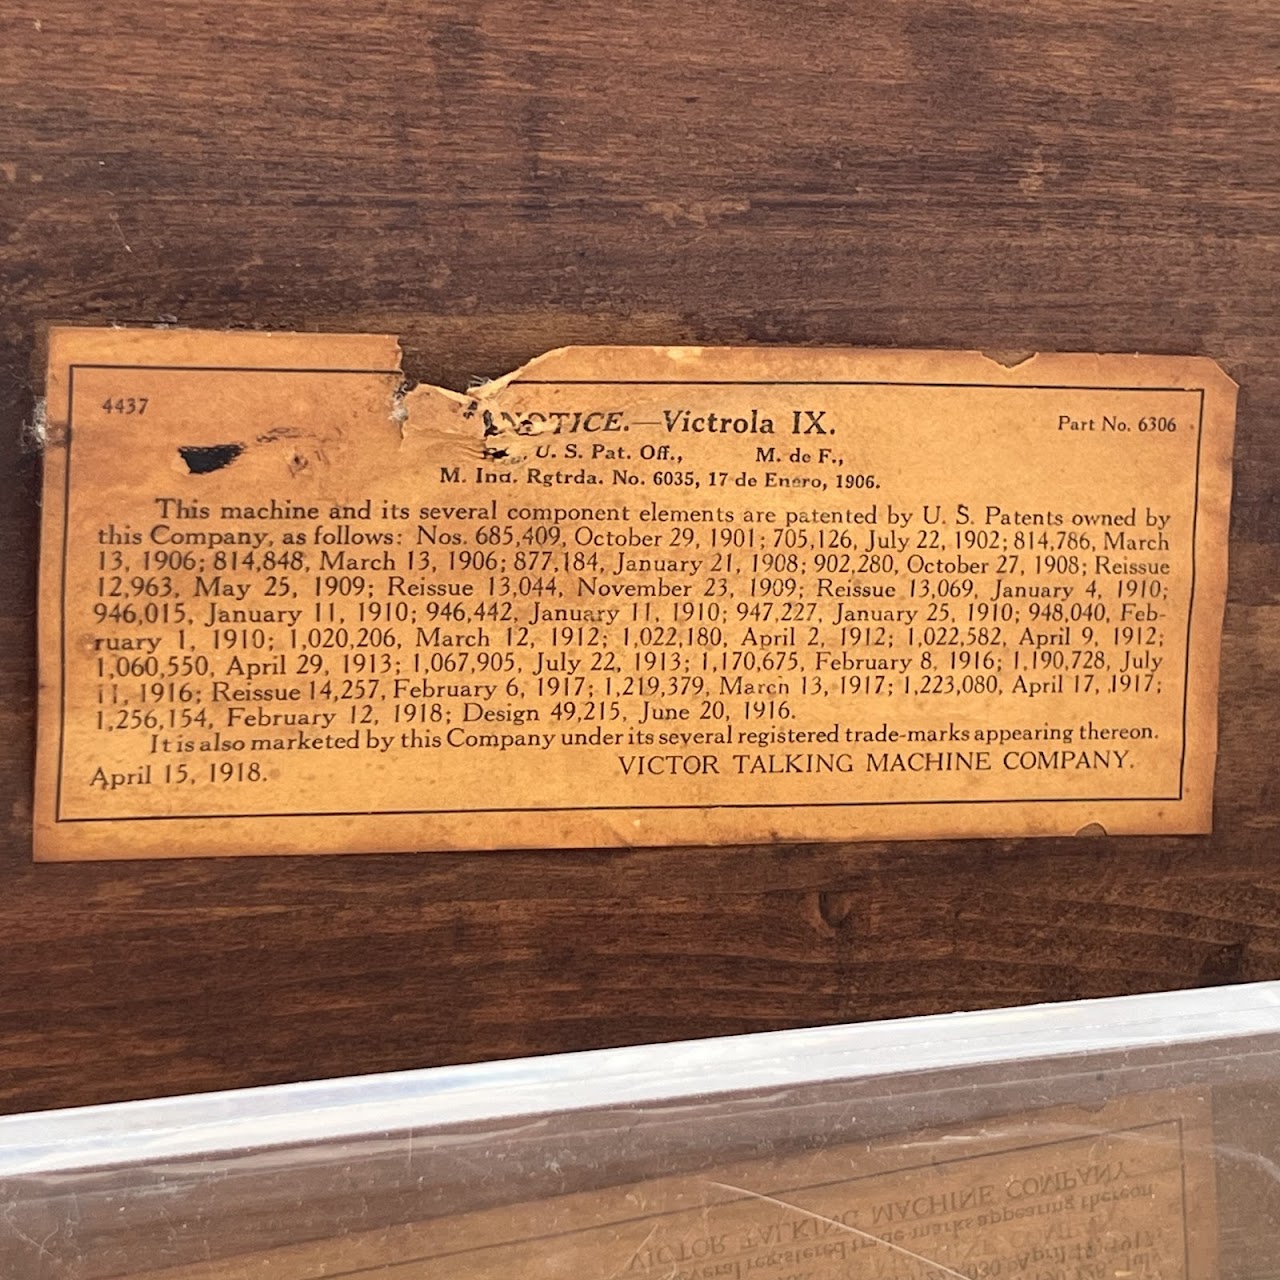 4437
NOTICE.—Victrola IX.
Part No. 6306
U. S. Pat. Off., M. de F.,
M. Ind. Rgtrda. No. 6035, 17 de Enero, 1906.
This machine and its several component elements are patented by U. S. Patents owned by
this Company, as follows: Nos. 685,409, October 29, 1901; 705,126, July 22, 1902; 814,786, March
13, 1906; 814,848, March 13, 1906; 877,184, January 21, 1908; 902,280, October 27, 1908; Reissue
12,963, May 25, 1909; Reissue 13,044, November 23, 1909; Reissue 13,069, January 4, 1910;
946,015, January 11, 1910; 946,442, January 11, 1910; 947,227, January 25, 1910; 948,040, Feb-
ruary 1, 1910; 1,020,206, March 12, 1912; 1,022,180, April 2, 1912; 1,022,582, April 9, 1912;
1,060,550, April 29, 1913; 1,067,905, July 22, 1913; 1,170,675, February 8, 1916; 1,190,728, July
11, 1916; Reissue 14,257, February 6, 1917; 1,219,379, March 13, 1917; 1,223,080, April 17, 1917;
1,256,154, February 12, 1918; Design 49,215, June 20, 1916.
It is also marketed by this Company under its several registered trade-marks appearing thereon.
April 15, 1918. VICTOR TALKING MACHINE COMPANY.